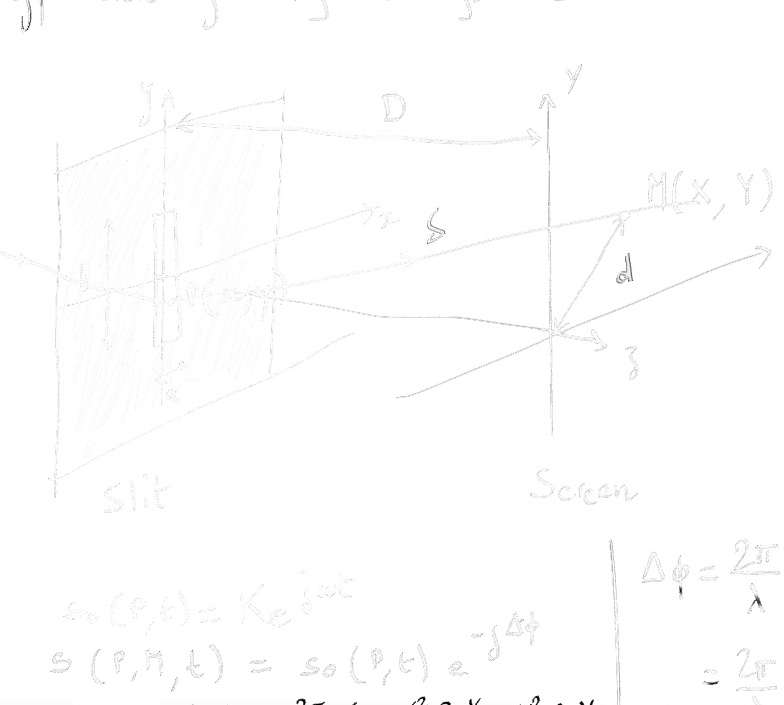 y
D
Y
M(X, Y)
x
S
d
P(x, y)
z
Slit
Screen
s₀(P,t) = K e^{jωt}
s(P,M,t) = s₀(P,t) e^{-jΔϕ}
Δϕ = 2π/λ
= 2π/λ